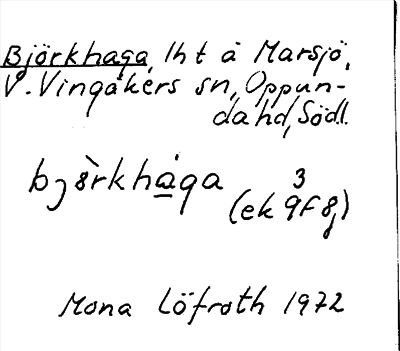 Björkhaga, lht å Marsjö,
V. Vingåkers sn, Oppun-
da hd, Södl.
bjə̀rkhàga
3
(ek 9F8j)
Mona Löfroth 1972